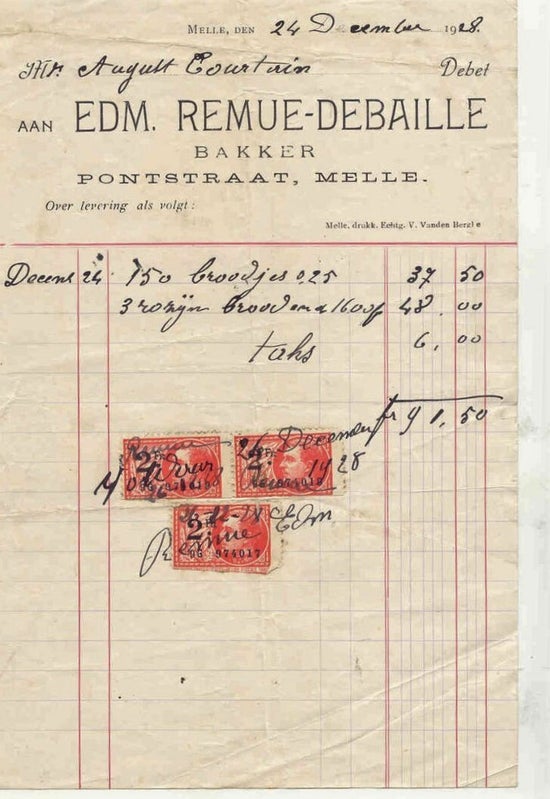 MELLE, DEN 24 December 1928.
Mr August Courtain Debet
AAN EDM. REMUE-DEBAILLE
BAKKER
PONTSTRAAT, MELLE.
Over levering als volgt :
Melle. drukk. Echtg. V. Vanden Berghe
Decem 24 150 broodjes 0,25 37 50
3 rozijn brooden a 16 00 f 48 . 00
taks 6 . 00
fr 91,50
24 December
Voor 1928
2 2
Edm
2
Remue
974017